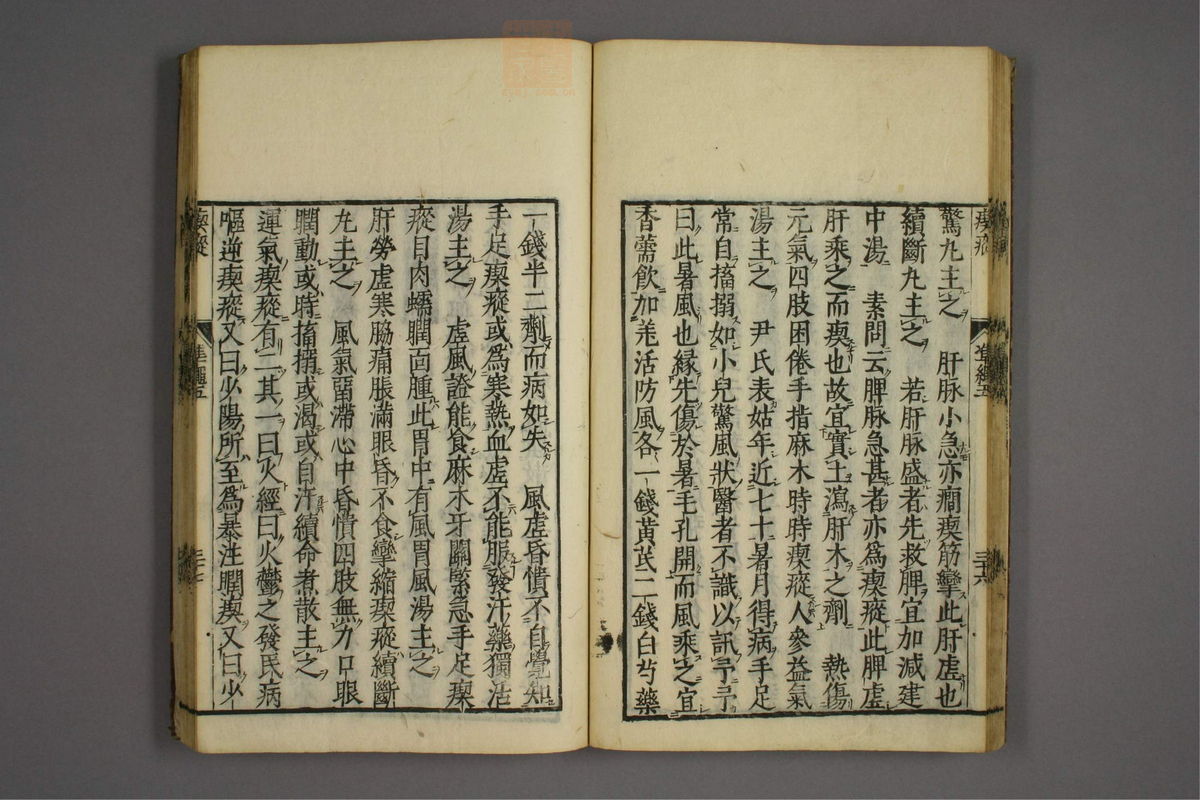 驚丸主之　肝脉小急亦癇瘈筋攣此肝虛也
續斷丸主之　若肝脉盛者先救脾宜加減建
中湯　素問云脾脉急甚者亦爲瘈瘲此脾虛
肝乘之而瘈也故宜實土瀉肝木之劑　熱傷
元氣四肢困倦手指麻木時時瘈瘲人參益氣
湯主之　尹氏表姑年近七十暑月得病手足
常自搐搦如小兒驚風狀醫者不識以訊予予
曰此暑風也緣先傷於暑毛孔開而風乘之宜
香薷飲加羌活防風各一錢黃芪二錢白芍藥
瘈瘲
準繩五
三十六
一錢半二劑而病如失　風虛昏憒不自覺知
手足瘈瘲或爲寒熱血虛不能服發汗藥獨活
湯主之　虛風證能食麻木牙關緊急手足瘈
瘲目肉蠕瞤面腫此胃中有風胃風湯主之
肝勞虛寒脇痛脹滿眼昏不食攣縮瘈瘲續斷
丸主之　風氣畱滯心中昏憒四肢無力口眼
瞤動或時搐搦或渴或自汗續命煮散主之
運氣瘈瘲有二其一曰火經曰火鬱之發民病
嘔逆瘈瘲又曰少陽所至爲暴注瞤瘈又曰少
瘈瘲
準繩五
三十七